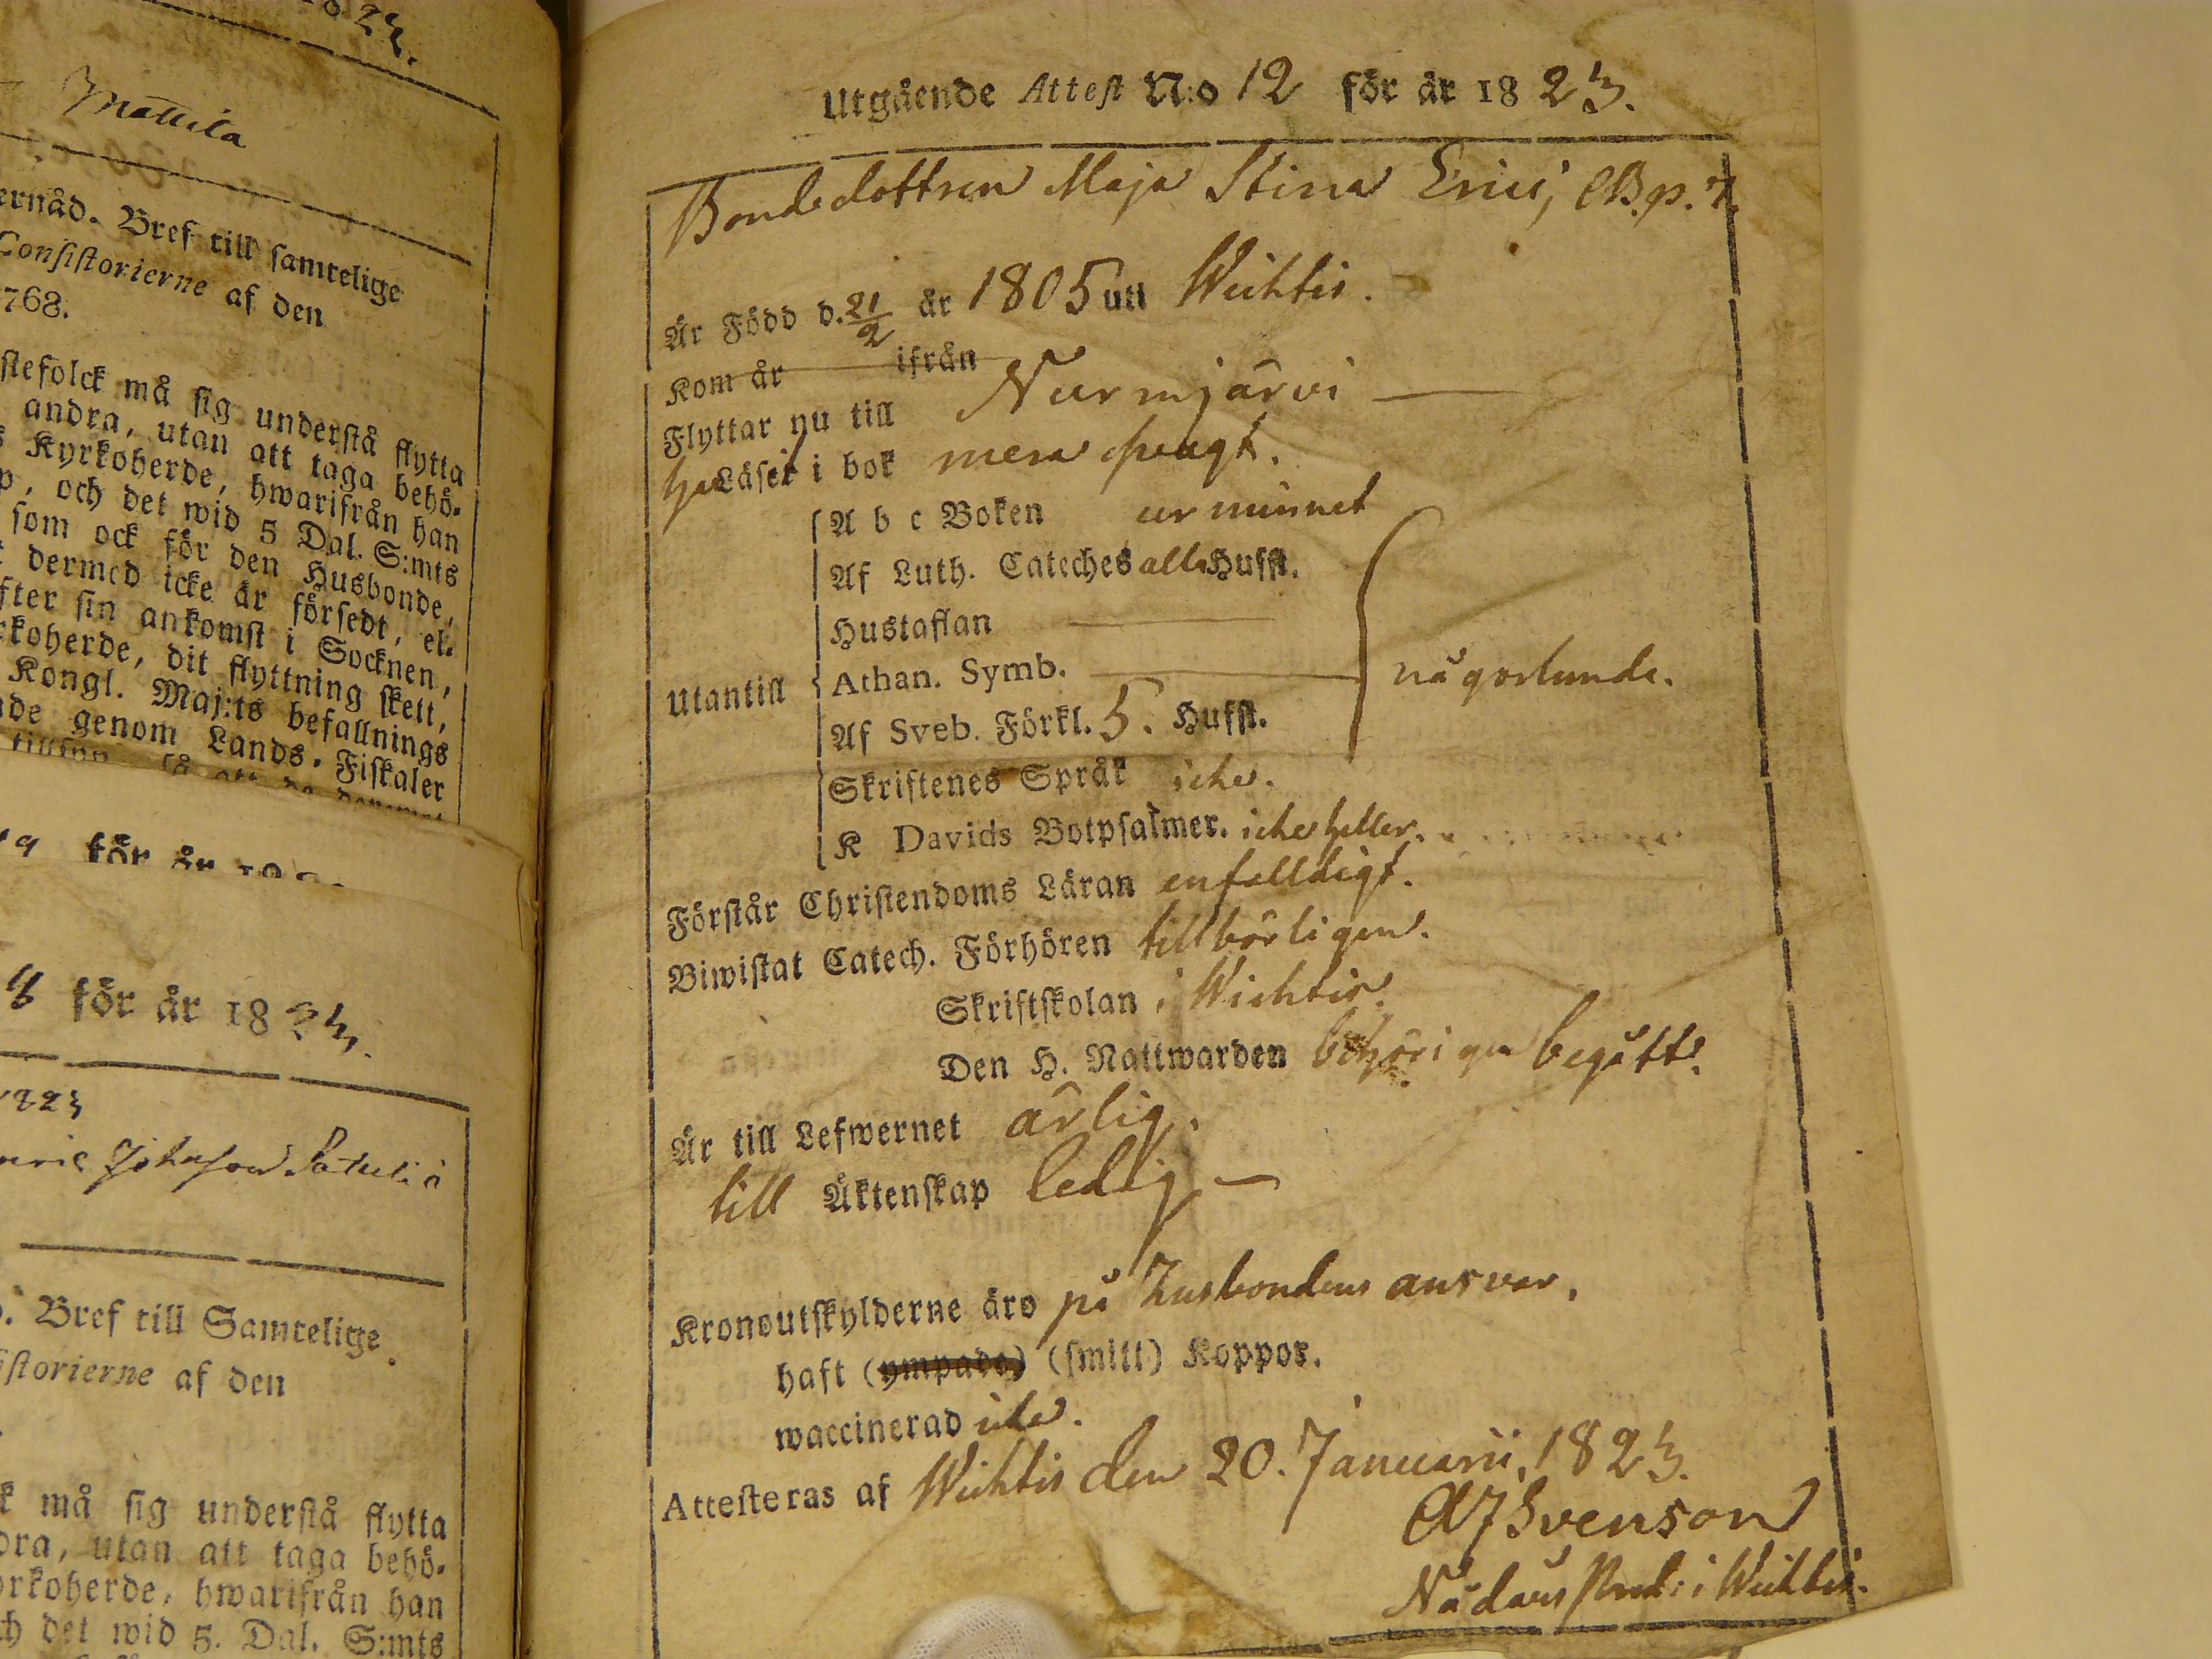 23.
Mattila
ernåd. Bref till samtelige
Consistorierne af den
768.
stefolck må sig understå flytta
andra, utan att taga behö-
s Kyrkoherde, hwarifrån han
p, och det wid 5 Dal. S:mts
som ock för den Husbonde,
t dermed icke är försedt, el-
fter sin ankomst i Socknen,
rkoherde, dit flyttning skett,
Kongl. Maj:ts befallnings
de genom Lands-Fiskaler
för år
för år 18 23.
1823
Johansson
. Bref till Samtelige
istorierne af den
k må sig understå flytta
dra, utan att taga behö-
rkoherde, hwarifrån han
ch det wid 5. Dal. S:mts
Utgående Attest N:o 12 för år 18 23.
Bondedottren Maja Stina Erici, CB.p. 7.
Är Född d. 21/2 år 1805 uti Wichtis.
Kom år ifrån
Flyttar nu till Nurmjärvi
har Läsit i bok mera svagt.
Utantill
A b c Boken ur minnet
Af Luth. Cateches alla Hufst.
Hustaflan
Athan. Symb.
Af Sveb. Förkl. 5. Hufst.
någorlunda.
Skriftenes Språk icke.
K Davids Botpsalmer. icke heller.
Förstår Christendoms Läran enfalldigt.
Biwistat Catech. Förhören tillbörligen.
Skriftskolan i Wichtis.
Den H. Nattwarden behörigen begått.
Är till Lefwernet ärlig.
till Äktenskap ledig
Kronoutskylderne äro på Husbondens ansvar.
haft (ympade) (smitt) Koppor.
waccinerad icke.
Attesteras af Wichtis den 20. Januarii, 1823.
Svenson
Nådaårs Pred: i Wichtis.